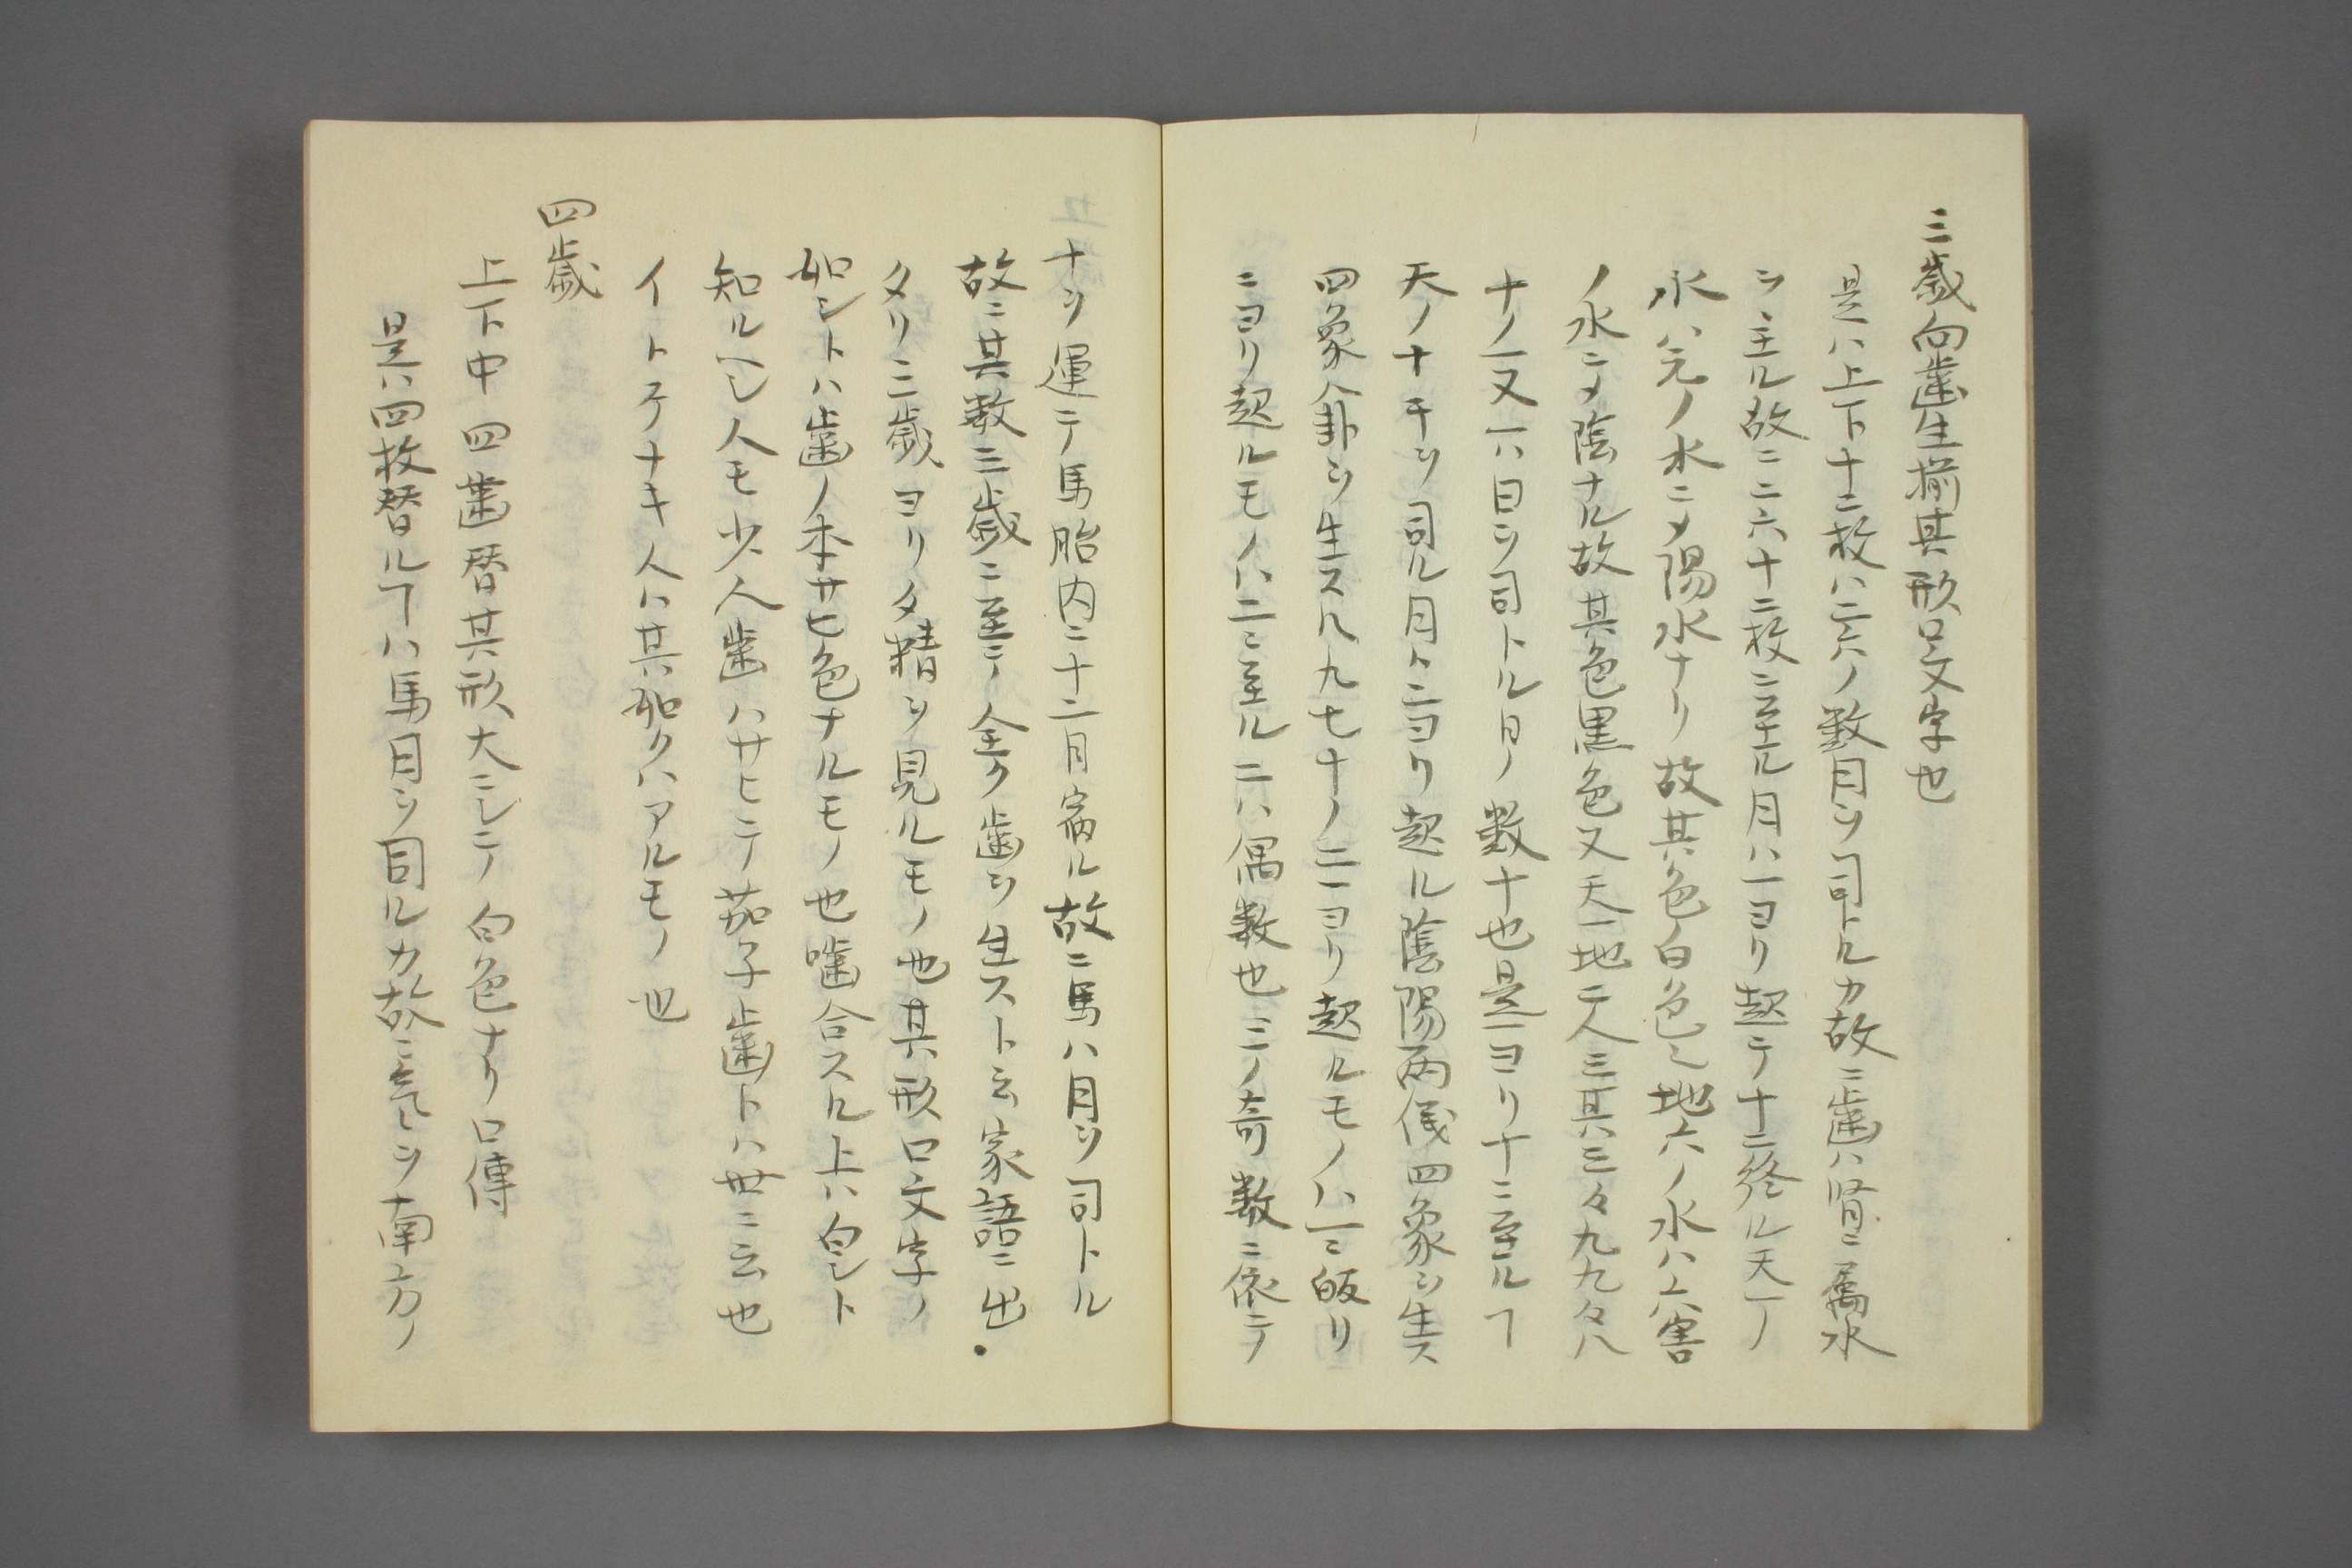 三歳向歯生揃其形口文字也
是ハ上下十二枚ハ二六ノ数月ヲ司トルカ故ニ歯ハ腎ニ属水
ヲ主ル故ニ二六十二枚ニ至ル月ハ一ヨリ起テ十二終ル天一ノ
水ハ元ノ水ニメ陽水ナリ故其色白色ミ地六ノ水ハ六害
ノ水ニメ陰ナル故其色黒色又天一地二人三其三々九九々八
十ノ一又一ハ日ヲ司トル日ノ数十也是一ヨリ十ニ至ルヿ
天ノ十干ヲ司ル月ハニヨリ起ル陰陽両儀四象ヲ生ス
四象八卦ヲ生ス八九七十ノ二一ヨリ起ルモノハ一ニ皈リ
ニヨリ起ルモノハ二ニ至ル二ハ偶数也三ノ奇数ニ依テ
十ヲ運テ馬胎内ニ十二月宿ル故ニ馬ハ月ヲ司トル
故ニ其数三歳ニ至テ全ク歯ヲ生スト云家語ニ出
タリ三歳ヨリタ精ヲ見ルモノ也其形口文字ノ
如シトハ歯ノ本サヒ色ナルモノ也噛合スル上ハ白シト
知ルヘシ人モ少人歯ハサヒテ茄子歯トハ世ニ云也
イトケナキ人ハ其如クハアルモノ也
四歳
上下中四歯替其形大ニシテ白色ナリ口傳
是ハ四枚替ルヿハ馬月ヲ司ルカ故ニ気ヲ南方ノ